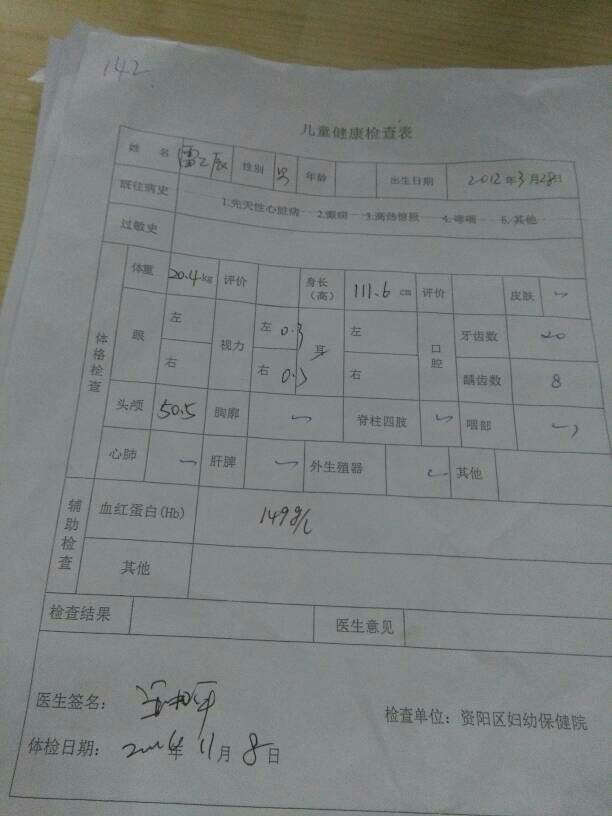 142
儿童健康检查表
姓名 雷 辰 性别 男 年龄 出生日期 2012年3月28日
既往病史 1.先天性心脏病 2.癫痫 3.高热惊厥 4.哮喘 5.其他
过敏史
体格检查
体重 20.4kg 评价 身长(高) 111.6 cm 评价 皮肤
眼 左 视力 左 0.3 耳 左 口腔 牙齿数 20
右 右 0.3 右 龋齿数 8
头颅 50.5 胸廓 脊柱四肢 咽部
心肺 肝脾 外生殖器 其他
辅助检查
血红蛋白(Hb) 149g/L
其他
检查结果 医生意见
医生签名：
检查单位：资阳区妇幼保健院
体检日期： 年 11月 8日